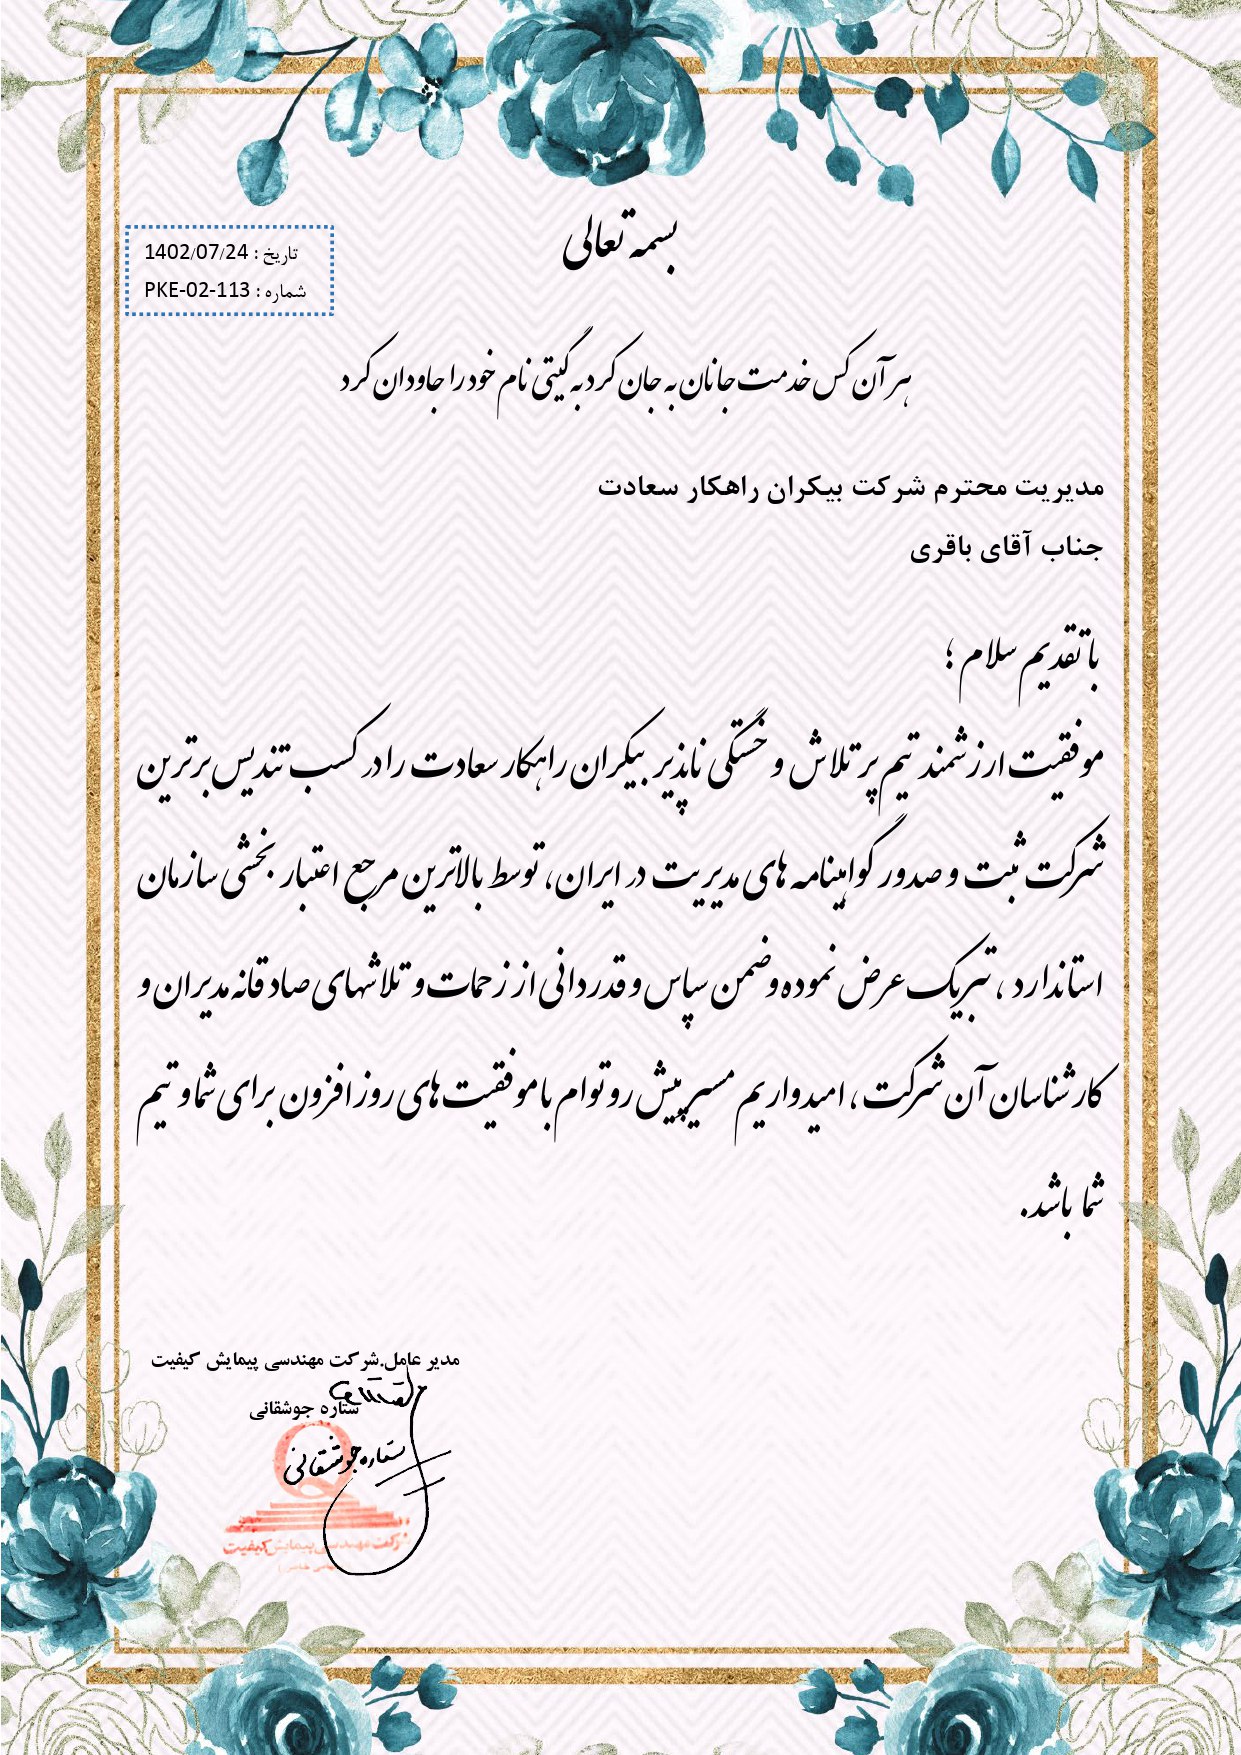 بسمه تعالی
تاریخ : 1402/07/24
شماره : PKE-02-113
هر آن کس خدمت جانان به جان کرد به گیتی نام خود را جاودان کرد
مدیریت محترم شرکت بیکران راهکار سعادت
جناب آقای باقری
با تقدیم سلام ؛
موفقیت ارزشمند تیم پر تلاش و خستگی ناپذیر بیکران راهکار سعادت را در کسب تندیس برترین
شرکت ثبت و صدور گواهینامه های مدیریت در ایران، توسط بالاترین مرجع اعتبار بخشی سازمان
استاندارد ، تبریک عرض نموده و ضمن سپاس و قدردانی از زحمات و تلاشهای صادقانه مدیران و
کارشناسان آن شرکت ، امیدواریم مسیر پیش رو توام با موفقیت های روز افزون برای شما و تیم
شما باشد.
مدیر عامل.شرکت مهندسی پیمایش کیفیت
ستاره جوشقانی
ستاره جوشقانی
شرکت مهندسی پیمایش کیفیت